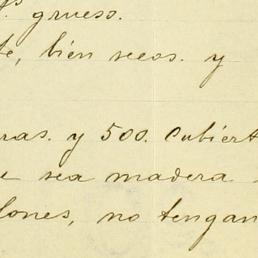 grueso.
te, bien secos. y
ras. y 500. Cubiert
e sea madera
lones, no tengan